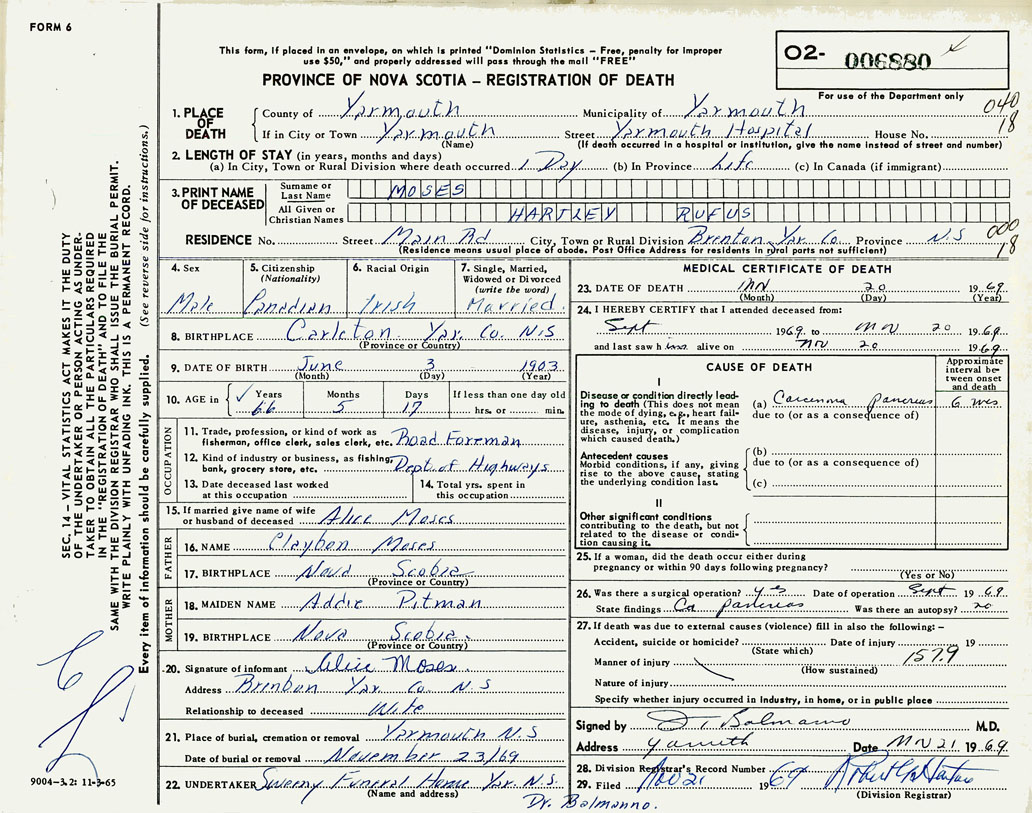 FORM 6
This form, if placed in an envelope, on which is printed "Dominion Statistics – Free, penalty for improper
use $50," and properly addressed will pass through the mail "FREE"
PROVINCE OF NOVA SCOTIA – REGISTRATION OF DEATH
02- 006880
For use of the Department only
040
18
1. PLACE OF DEATH
County of Yarmouth Municipality of Yarmouth
If in City or Town Yarmouth Street Yarmouth Hospital House No.
(Name) (If death occurred in a hospital or institution, give the name instead of street and number)
2. LENGTH OF STAY (in years, months and days)
(a) In City, Town or Rural Division where death occurred 1 Day (b) In Province Life (c) In Canada (if immigrant)
3. PRINT NAME OF DECEASED
Surname or Last Name MOSES
All Given or Christian Names HARTLEY RUFUS
000
18
RESIDENCE No. Street Main Rd City, Town or Rural Division Brenton, Yar. Co. Province N.S
(Residence means usual place of abode. Post Office Address for residents in rural parts not sufficient)
4. Sex Male
5. Citizenship (Nationality) Canadian
6. Racial Origin Irish
7. Single, Married, Widowed or Divorced (write the word) Married.
8. BIRTHPLACE Carleton Yar. Co. N.S
(Province or Country)
9. DATE OF BIRTH June 3 1903
(Month) (Day) (Year)
10. AGE in ✓ Years Months Days If less than one day old
66 5 17 hrs. or min.
OCCUPATION
11. Trade, profession, or kind of work as fisherman, office clerk, sales clerk, etc. Road Foreman
12. Kind of industry or business, as fishing, bank, grocery store, etc. Dept. of Highways
13. Date deceased last worked at this occupation
14. Total yrs. spent in this occupation
15. If married give name of wife or husband of deceased Alice Moses
FATHER
16. NAME Clayton Moses
17. BIRTHPLACE Nova Scotia
(Province or Country)
MOTHER
18. MAIDEN NAME Addie Pitman
19. BIRTHPLACE Nova Scotia.
(Province or Country)
20. Signature of informant Alice Moses
Address Brenton Yar. Co. N.S
Relationship to deceased Wife
21. Place of burial, cremation or removal Yarmouth N.S
Date of burial or removal November 23/69
22. UNDERTAKER Sweeny Funeral Home Yar. N.S.
(Name and address)
MEDICAL CERTIFICATE OF DEATH
23. DATE OF DEATH Nov 20 1969
(Month) (Day) (Year)
24. I HEREBY CERTIFY that I attended deceased from:
Sept 1969 to Nov 20 1969
and last saw him alive on Nov 20 1969
CAUSE OF DEATH
Approximate interval between onset and death
I
Disease or condition directly leading to death (This does not mean the mode of dying, e.g., heart failure, asthenia, etc. It means the disease, injury, or complication which caused death.)
(a) Carcinoma Pancreas 6 mos
due to (or as a consequence of)
Antecedent causes
Morbid conditions, if any, giving rise to the above cause, stating the underlying condition last.
(b)
due to (or as a consequence of)
(c)
II
Other significant conditions
contributing to the death, but not related to the disease or condition causing it.
25. If a woman, did the death occur either during
pregnancy or within 90 days following pregnancy?
(Yes or No)
26. Was there a surgical operation? yes Date of operation Sept 1969
State findings Ca pancreas Was there an autopsy? no
27. If death was due to external causes (violence) fill in also the following: –
Accident, suicide or homicide? Date of injury 19
(State which) 157.9
Manner of injury
(How sustained)
Nature of injury
Specify whether injury occurred in industry, in home, or in public place
Signed by Balmanno M.D.
Address Yarmouth Date Nov 21 1969
28. Division Registrar's Record Number
29. Filed Nov 21 1969
(Division Registrar)
Dr. Balmanno.
SEC. 14 – VITAL STATISTICS ACT MAKES IT THE DUTY
OF THE UNDERTAKER OR PERSON ACTING AS UNDER-
TAKER TO OBTAIN ALL THE PARTICULARS REQUIRED
IN THE "REGISTRATION OF DEATH" AND TO FILE THE
SAME WITH THE DIVISION REGISTRAR WHO SHALL ISSUE THE BURIAL PERMIT.
WRITE PLAINLY WITH UNFADING INK. THIS IS A PERMANENT RECORD.
Every item of information should be carefully supplied. (See reverse side for instructions.)
9004–3.2: 11-3-65